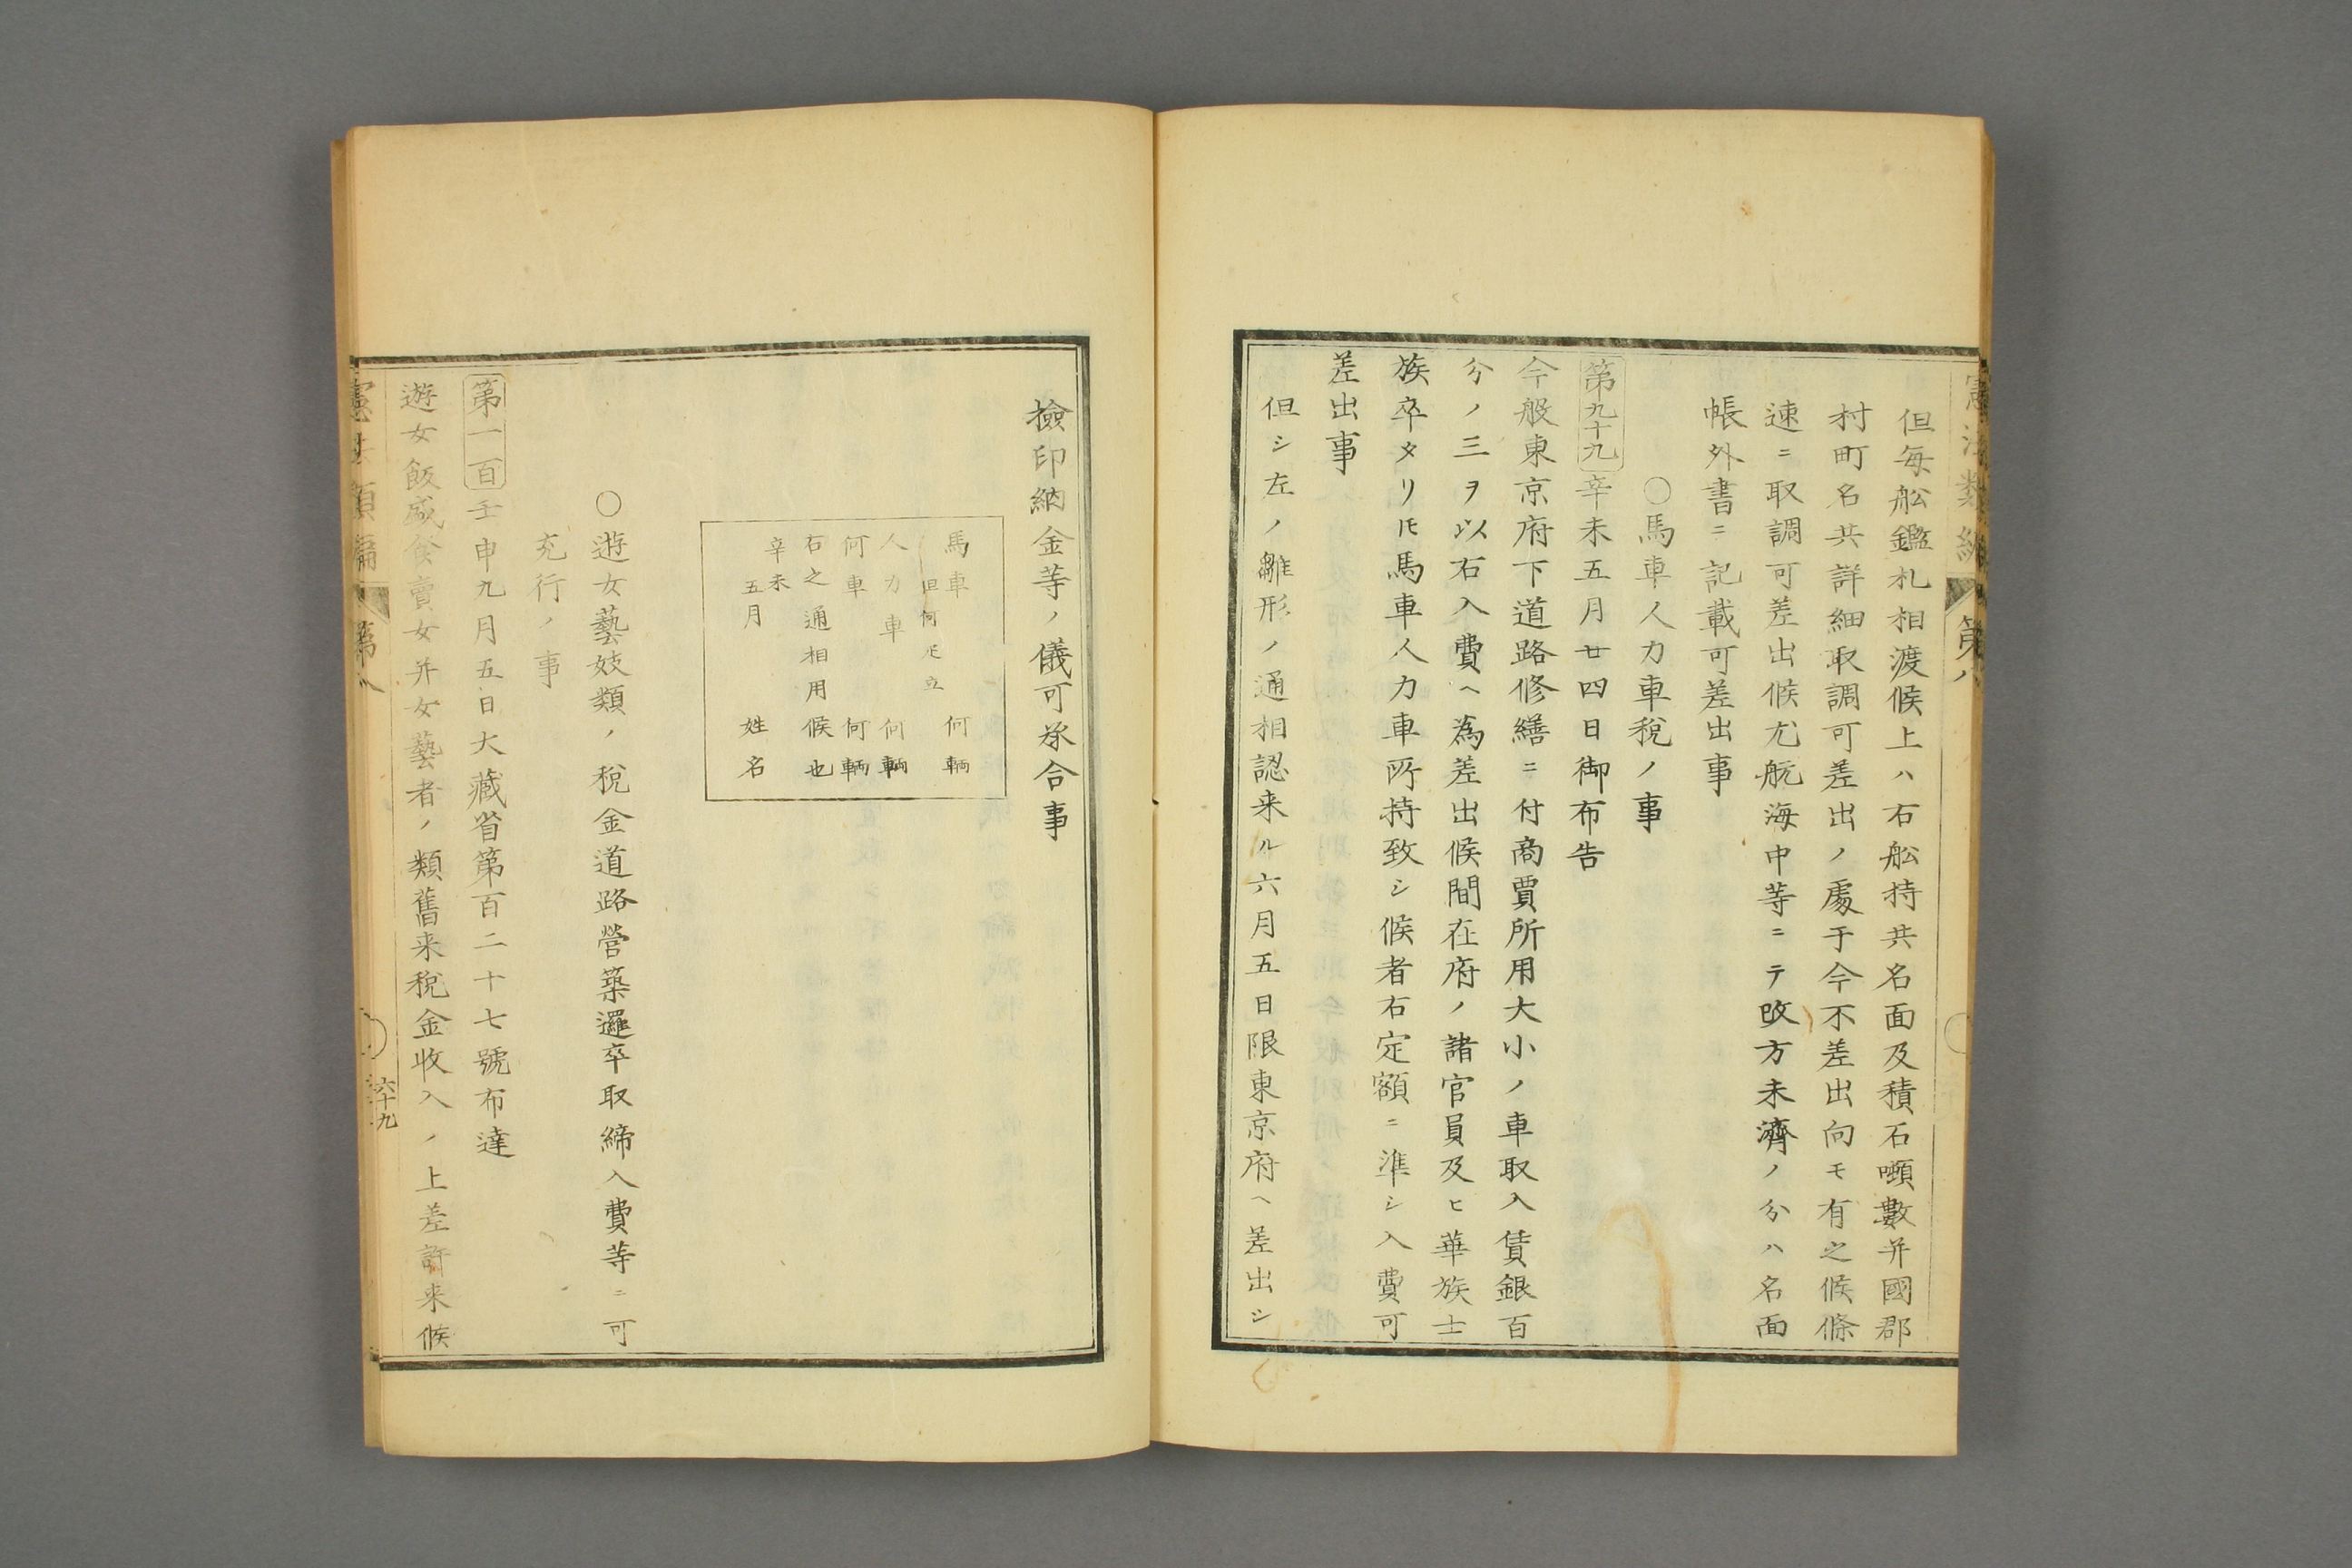 但毎舩鑑札相渡候上ハ右舩持共名面及積石噸數并國郡
村町名共詳細取調可差出ノ處于今不差出向モ有之候條
速ニ取調可差出候尤航海中等ニテ改方未濟ノ分ハ名面
帳外書ニ記載可差出事
〇馬車人力車税ノ事
第九十九辛未五月廿四日御布告
今般東京府下道路修繕ニ付商賈所用大小ノ車取入賃銀百
分ノ三ヲ以右入費ヘ為差出候間在府ノ諸官員及ヒ華族士
族卒タリ𪜈馬車人力車所持致シ候者右定額ニ準シ入費可
差出事
但シ左ノ雛形ノ通相認来ル六月五日限東京府ヘ差出シ
検印納金等ノ儀可承合事
馬車 何輌
但何疋立
人力車 何輌
何車 何輌
右之通相用候也
辛未
五月 姓名
〇遊女藝妓類ノ税金道路營築邏卒取締入費等ニ可
充行ノ事
第一百壬申九月五日大藏省第百二十七號布達
遊女飯盛食賣女并女藝者ノ類舊来税金收入ノ上差許来候
憲法類編 第八
六十九